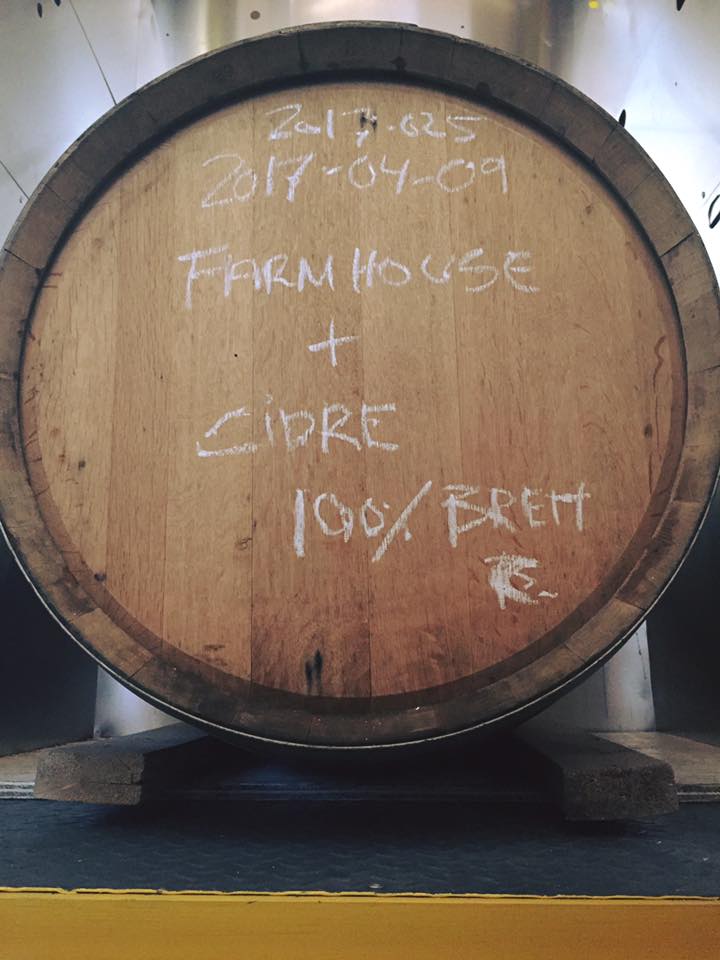 2017-025
2017-04-09
FARMHOUSE
+
CIDRE
100% BRETT